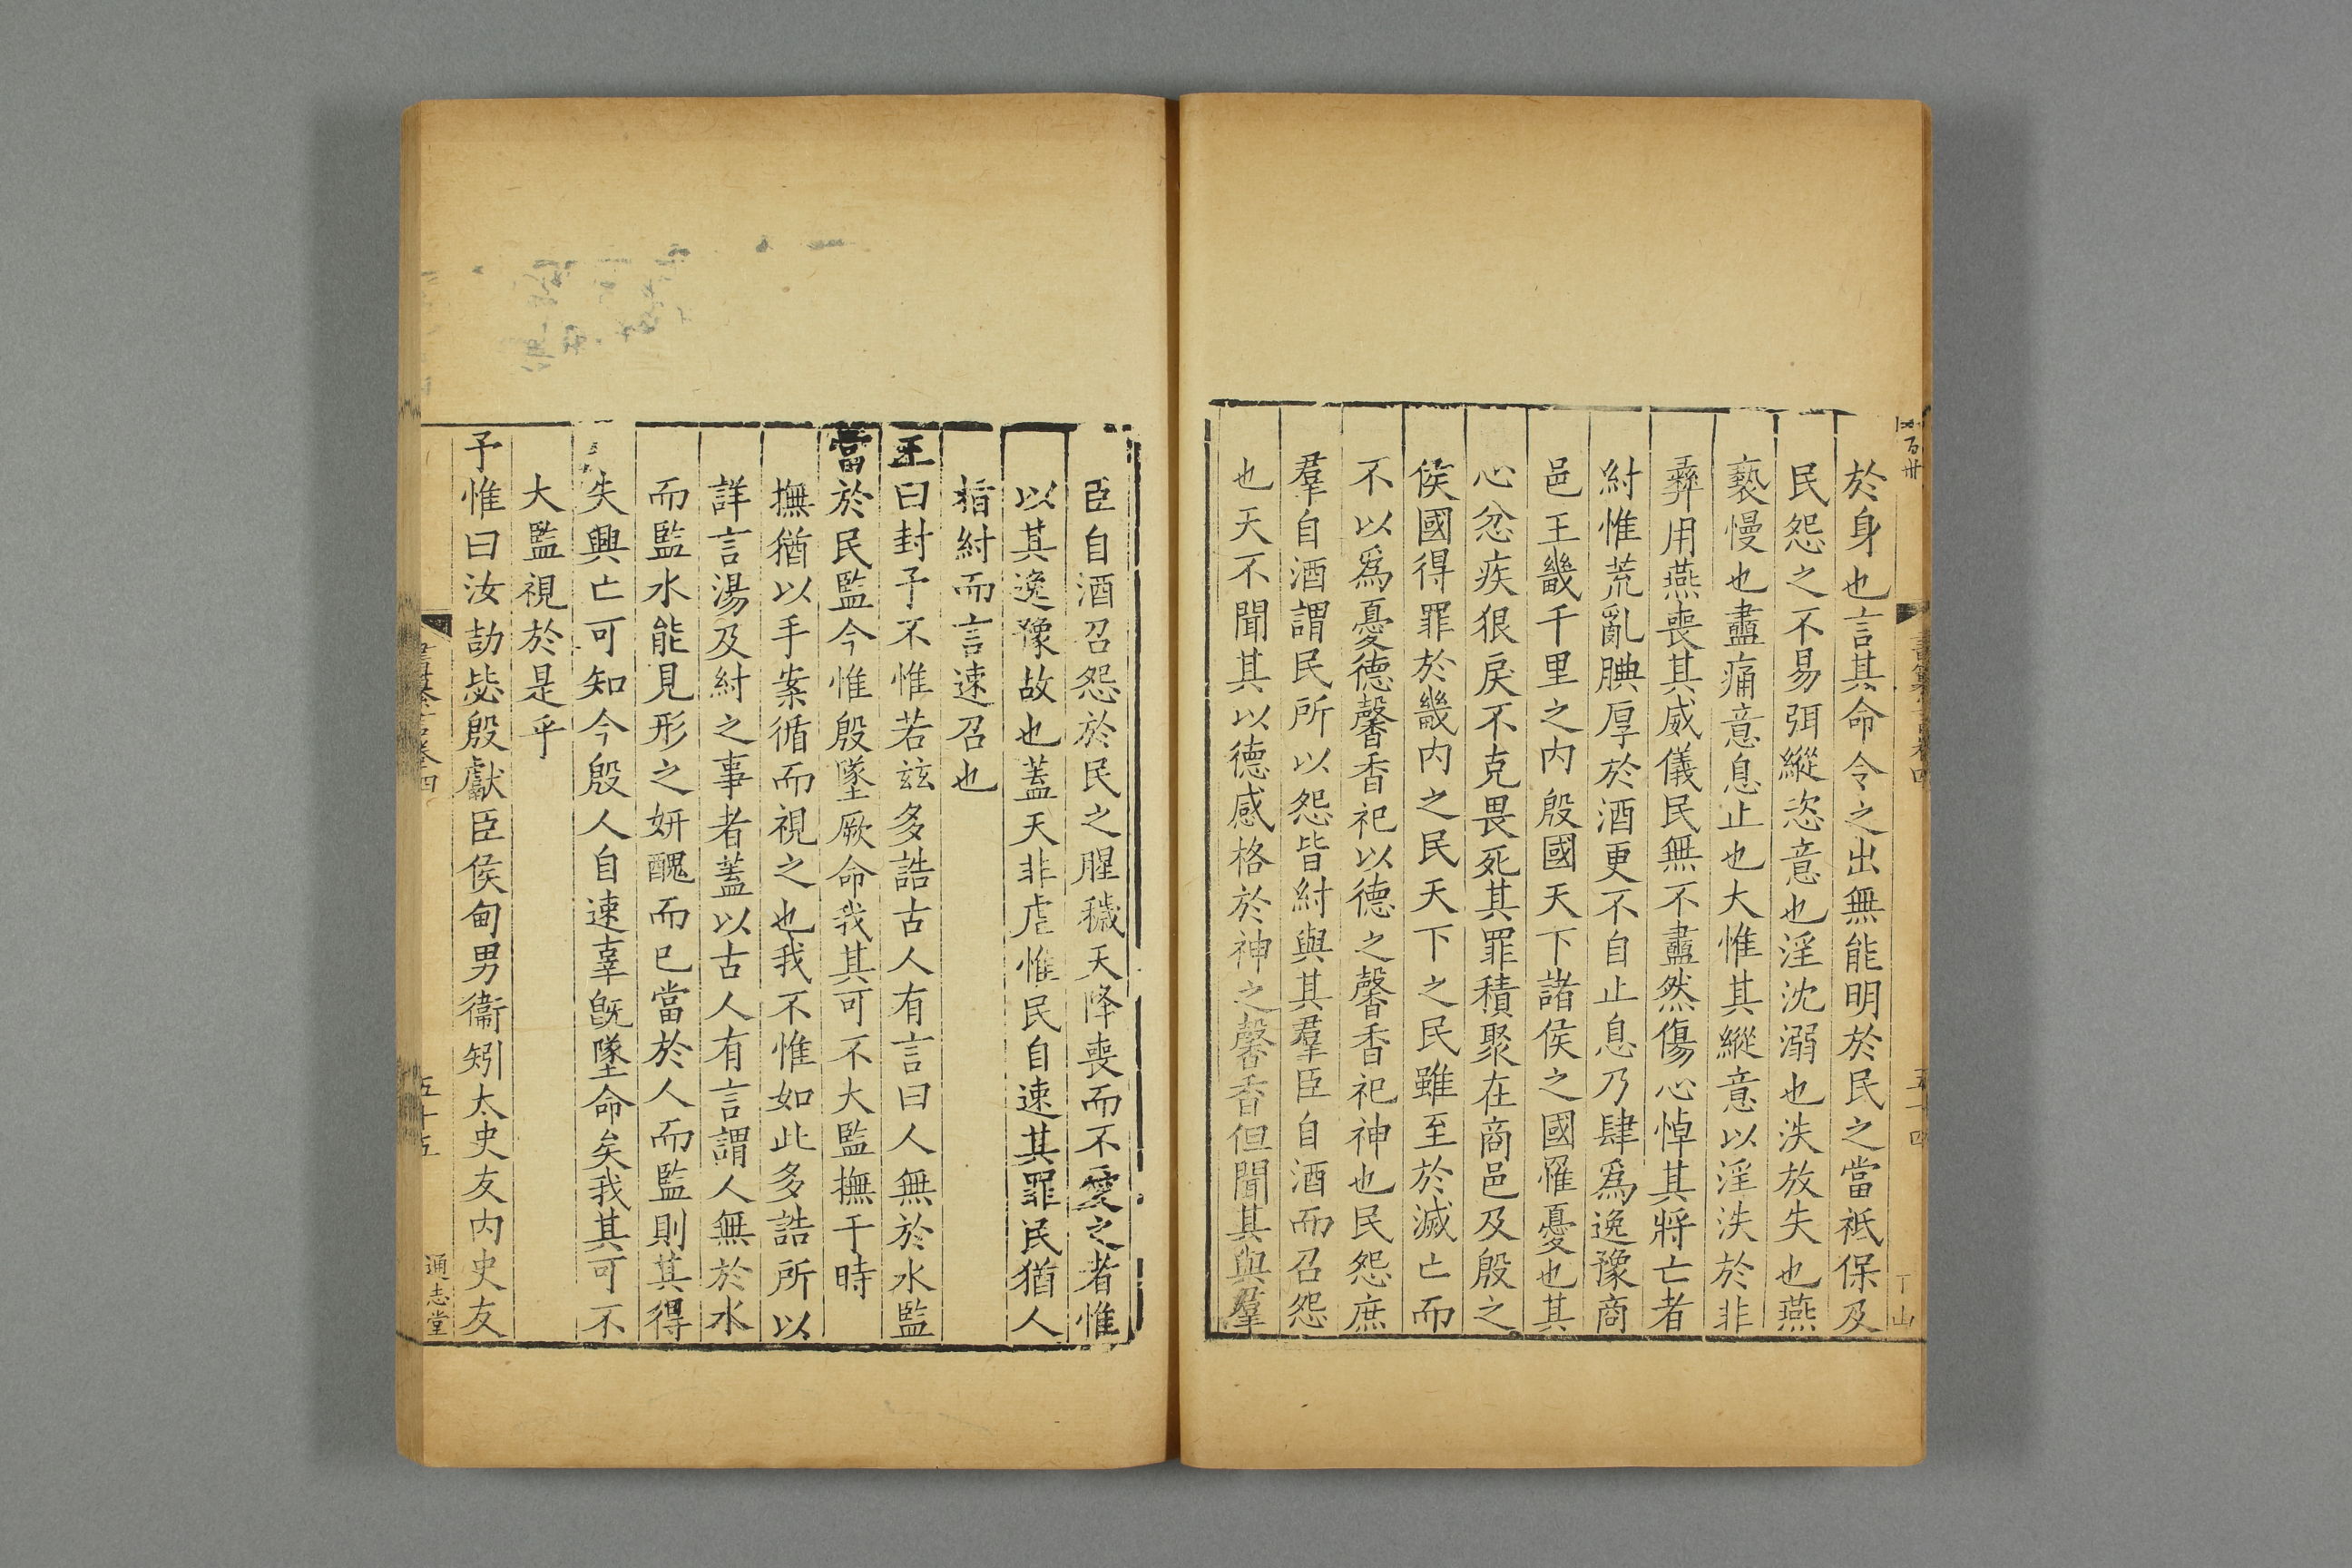 於身也言其命令之出無能明於民之當祗保及
民怨之不易弭縱恣意也淫沈溺也泆放失也燕
褻慢也衋痛意息止也大惟其縱意以淫泆於非
彞用燕喪其威儀民無不衋然傷心悼其將亡者
紂惟荒亂腆厚於酒更不自止息乃肆爲逸豫商
邑王畿千里之内殷國天下諸侯之國罹憂也其
心忿疾狠戾不克畏死其罪積聚在商邑及殷之
侯國得罪於畿内之民天下之民雖至於滅亡而
不以爲憂德馨香祀以德之馨香祀神也民怨庶
羣自酒謂民所以怨皆紂與其羣臣自酒而召怨
也天不聞其以德感格於神之馨香但聞其與羣
臣自酒召怨於民之腥穢天降喪而不愛之者惟
以其逸豫故也蓋天非虐惟民自速其罪民猶人
指紂而言速召也
王曰封予不惟若兹多誥古人有言曰人無於水監
當於民監今惟殷墜厥命我其可不大監撫于時
撫猶以手案循而視之也我不惟如此多誥所以
詳言湯及紂之事者蓋以古人有言謂人無於水
而監水能見形之妍醜而已當於人而監則其得
失興亡可知今殷人自速辜旣墜命矣我其可不
大監視於是乎
予惟曰汝劼毖殷獻臣侯甸男衞矧太史友内史友
五十五
通志堂